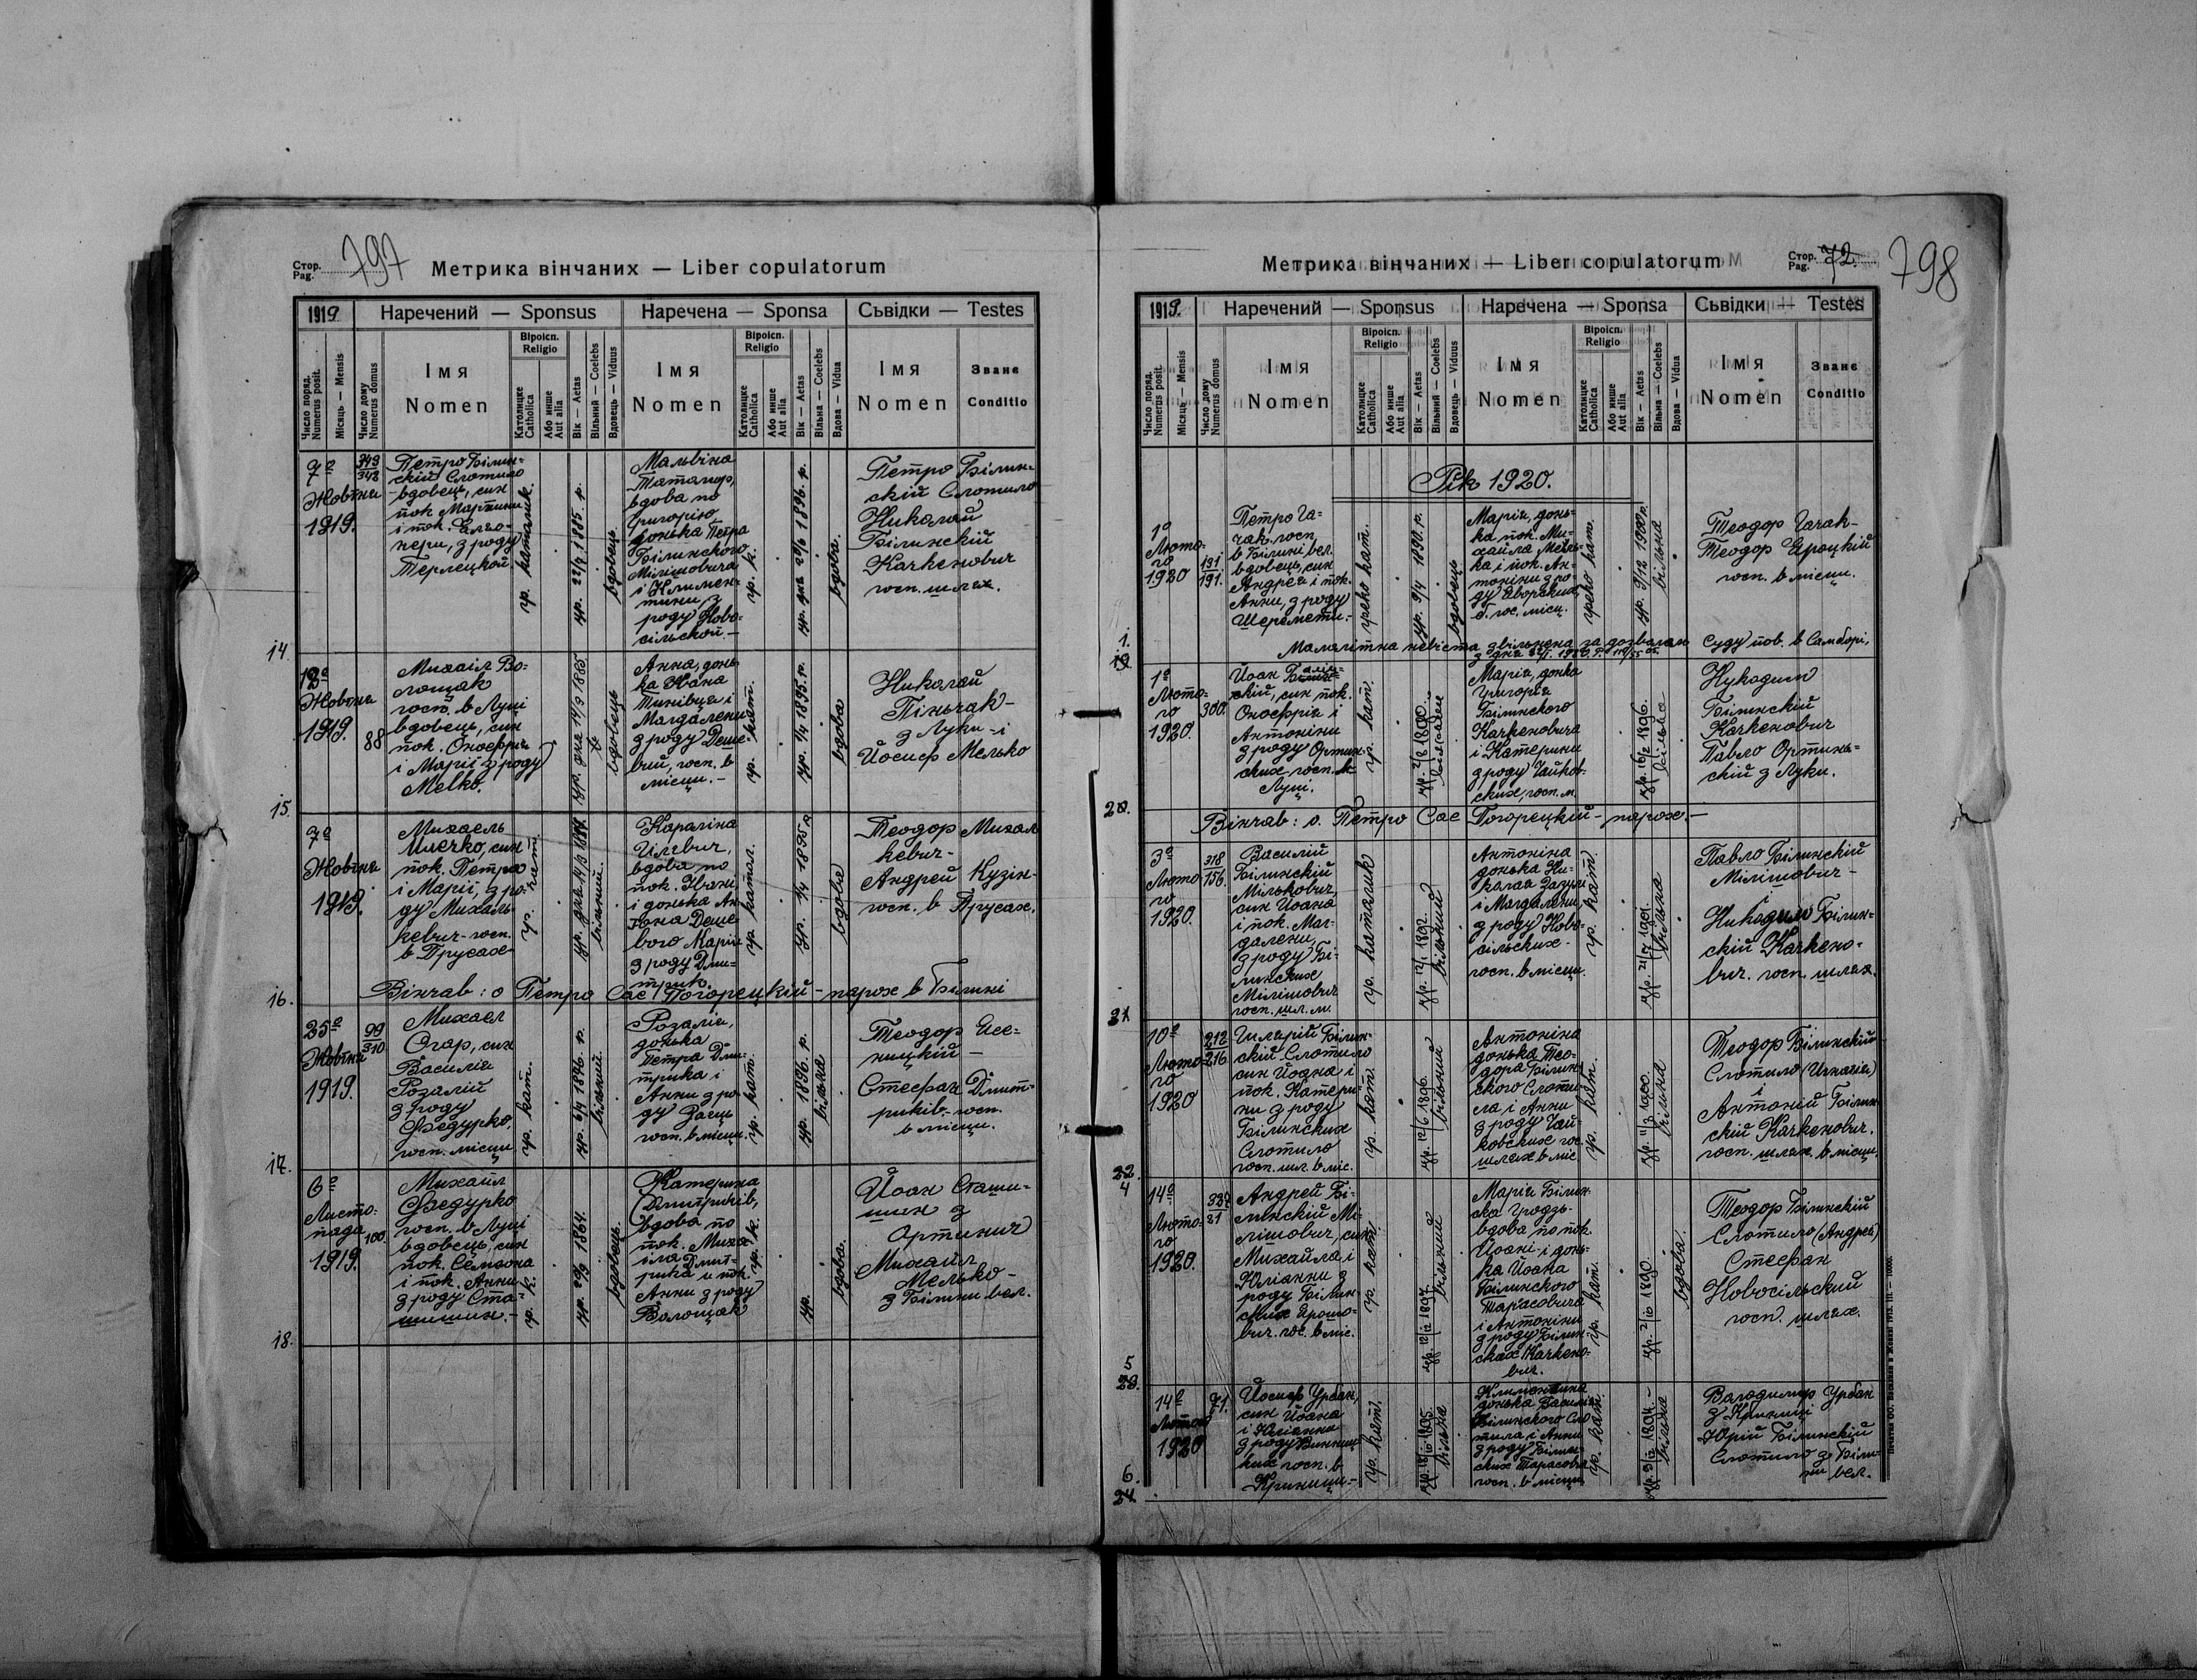 Стор.
Pag.
797
Метрика вінчаних — Liber copulatorum
1919
Наречений — Sponsus
Наречена — Sponsa
Сьвідки — Testes
Число поряд.
Numerus posit.
Місяць — Mensis
Число дому
Numerus domus
Імя
Nomen
Віроісп.
Religio
Католицке
Catholica
Або инше
Aut alia
Вік — Aetas
Вільний — Coelebs
Вдовець — Viduus
Імя
Nomen
Віроісп.
Religio
Католицке
Catholica
Або инше
Aut alia
Вік — Aetas
Вільна — Coelebs
Вдова — Vidua
Імя
Nomen
Званє
Conditio
14.
7º
Жовтня
1919.
349
348
Петро Білин-
скій Слотило
вдовець, син
пок Мартина
і пок.
нери, з роду
Терлецкой
гр. католик.
ур. 22/4 1885 р.
вдовець
Мальвіна
Татомир,
вдова по
Григорію
донька Петра
Білинского
Мілішовича
і Климен-
тини, з
роду Ново-
сільской.-
гр. к.
ур. дня 20/6 1896. р.
вдова.
Петро Білин-
скій Слотило
Николай
Білинскій
Каченович
госп. шлях.
15.
12º
Жовтня
1919.
88
Михаіл Во-
лощак
госп. в Луці
вдовець, син
пок. Онофрія
і Марії з роду
Melko.
ур. дня 14/9 1885
вдовець
Анна, донь-
ка Івана
Тинівця і
Магдалени
з роду Деше-
вий, госп. в
місци.-
гр. кат.
ур. 1/4 1895. р.
вдова
Николай
Піньчак-
з Луки - і
Йосиф Мелько
16.
7º
Жовтня
1919.
Михаель
Илечко, син
пок. Петра
і Марії, з ро-
ду Михаль-
кевич-госп.
в Прусах
гр. кат.
вільний.
Кароліна
Илевич,
вдова по
пок. Івані
і донька Ан-
тона Деше-
вого Марії
з роду Дми-
трик.
гр. катол.
ур. 1/4 1895 р
вдова
Теодор Михаль
кевич-
Андрей Кузін-
госп. в Прусах.
Вінчав: о Петро Сас Погорецкій - парох в Білині
17.
25º
Жовтня
1919.
99
310
Михаел
Огар, син
Василія
Розалій
з роду
Федурко.
госп. місци
гр. кат.
ур. 6/4 1896. р.
вільний
Розалія,
донька
Петра Дми-
трика і
Анни з ро-
ду Заєць
госп. в місци.
гр. кат.
ур. 1896. р.
вільна
Теодор Ясе-
ницкій —
Стефан Дмит-
риків-госп.
в місци.
18.
6º
Листо-
пада
1919.
100
Михайл
Федурко
госп. в Луці
вдовець, син
пок. Семиона
і пок. Анни
з роду Ста-
шишин.-
гр. к.
ур. 20/9 1864.
вдовець.
Катерина
Дмитриків,
вдова по
пок. Миха-
іла Дмит-
рика и пок.
Анни з роду
Волощак
гр. к.
ур.
вдова.
Йоан Сташи-
шин з
Ортинич
Михайл
Мелько-
з Білини вел.
Метрика вінчаних — Liber copulatorum
Стор.
Pag.
72.
798
1919.
Наречений — Sponsus
Наречена — Sponsa
Сьвідки — Testes
Число поряд.
Numerus posit.
Місяць — Mensis
Число дому
Numerus domus
Імя
Nomen
Віроісп.
Religio
Католицке
Catholica
Або инше
Aut alia
Вік — Aetas
Вільний — Coelebs
Вдовець — Viduus
Імя
Nomen
Віроісп.
Religio
Католицке
Catholica
Або инше
Aut alia
Вік — Aetas
Вільна — Coelebs
Вдова — Vidua
Імя
Nomen
Званє
Conditio
Рік 1920.
1.
19
1º
Люто-
го
1920
191
191.
Петро Га-
чак госп.
в Білині вел.
вдовець, син
Андрея і пок.
Анни, з роду
Шеремети-
греко кат.
ур. 9/4 1890. р.
вдовець
Марія, донь-
ка пок. Ми-
хайла Мель-
ка і пок. Ан-
тоніни з ро-
ду Яворских,
місц.
греко кат.
ур. 9/12 1900 р.
вільна
Теодор Гачак-
Теодор Яроцкій
госп. в місци.
Малолітна невіста звільнена за дозволом Суду пов. в Самборі,
20.
1º
Люто-
го
1920.
300.
Йоан
скій, син пок.
Онофрія і
Антоніни
з роду Ортин-
ских госп. в
Луц.
гр. кат.
ур. 2/8 1890.
Марія, донка
Григорія
Білинского
Каченовича
і Катерини
з роду Чайков-
ских, госп. м.
ур. 16/2 1896.
вільна
Никодим
Білинскій
Каченович
Павло Ортинь-
скій з Луки.
Вінчав: о. Петро Сас Погорецкій - парох.-
21.
3º
Люто-
го
1920.
318
156.
Василій
Білинскій
Мількович
син Йоана
і пок. Маг-
далени,
з роду Бі-
линских
Мілішович
госп. шл. м.
гр. католик
ур. 12/1 1892.
вільний
Антоніна
донька Ни-
колая Зазуля
і Магдалени
з роду Ново-
сільских-
госп. в місци.
гр. кат.
ур. 21/7 1901.
вільна
Павло Білинскій
Мілішович-
і
Никодим Білин-
скій Качено-
вич. госп. шлях.
22.
4
10º
Люто-
го
1920
212
216
Гилярій Білин-
скій Слотило
син Йоана і
пок. Катери-
ни з роду
Білинских
Слотило
госп. шл. в міс.
гр. кат.
ур. 12/6 1896.
вільний
Антоніна
донька Тео-
дора Білин-
ского Слоти-
ла і Анни
з роду Чай-
ковских гос
шлях в міс.
гр. кат.
ур. 11/3 1900.
вільна
Теодор Білинскій
Слотило (Игнатія)
і
Антоній Білин-
скій Каченович.
госп. шлях. в місци.
5
23.
14º
Люто-
го
1920.
337
21
Андрей Бі-
линскій Мі-
лішович, син
Михайла і
Юліанни з
роду Білин-
ских Ярошо-
вич. гос. в міс.
гр. кат.
ур. 12/12 1897.
вільний
Марія Білин-
ска Градзь-
вдова по пок.
Йоані і донь-
ка Йоана
Білинского
Тарасовича
і Антоніни
з роду Білин-
ских Качено-
вич.
гр. кат.
ур. 2/10 1890.
вдова.
Теодор Білинскій
Слотило (Андрея)
Стефан
Новосільский
госп. шлях.
6.
24.
14º
Лютого
1920
71.
Йосиф Урбан,
син Йоана
і Юліанни
з роду Винниц-
ких госп. в
Криници.-
гр. кат.
вільна
Климентина
донька Василія
Білинского Сло-
тила і Анни
з роду Білин-
ских Тарасович
госп. в місци
гр. кат.
вільна
Володимир Урбан
з Криниці
Юрій Білинскій
Слотило з Біли-
ни вел.